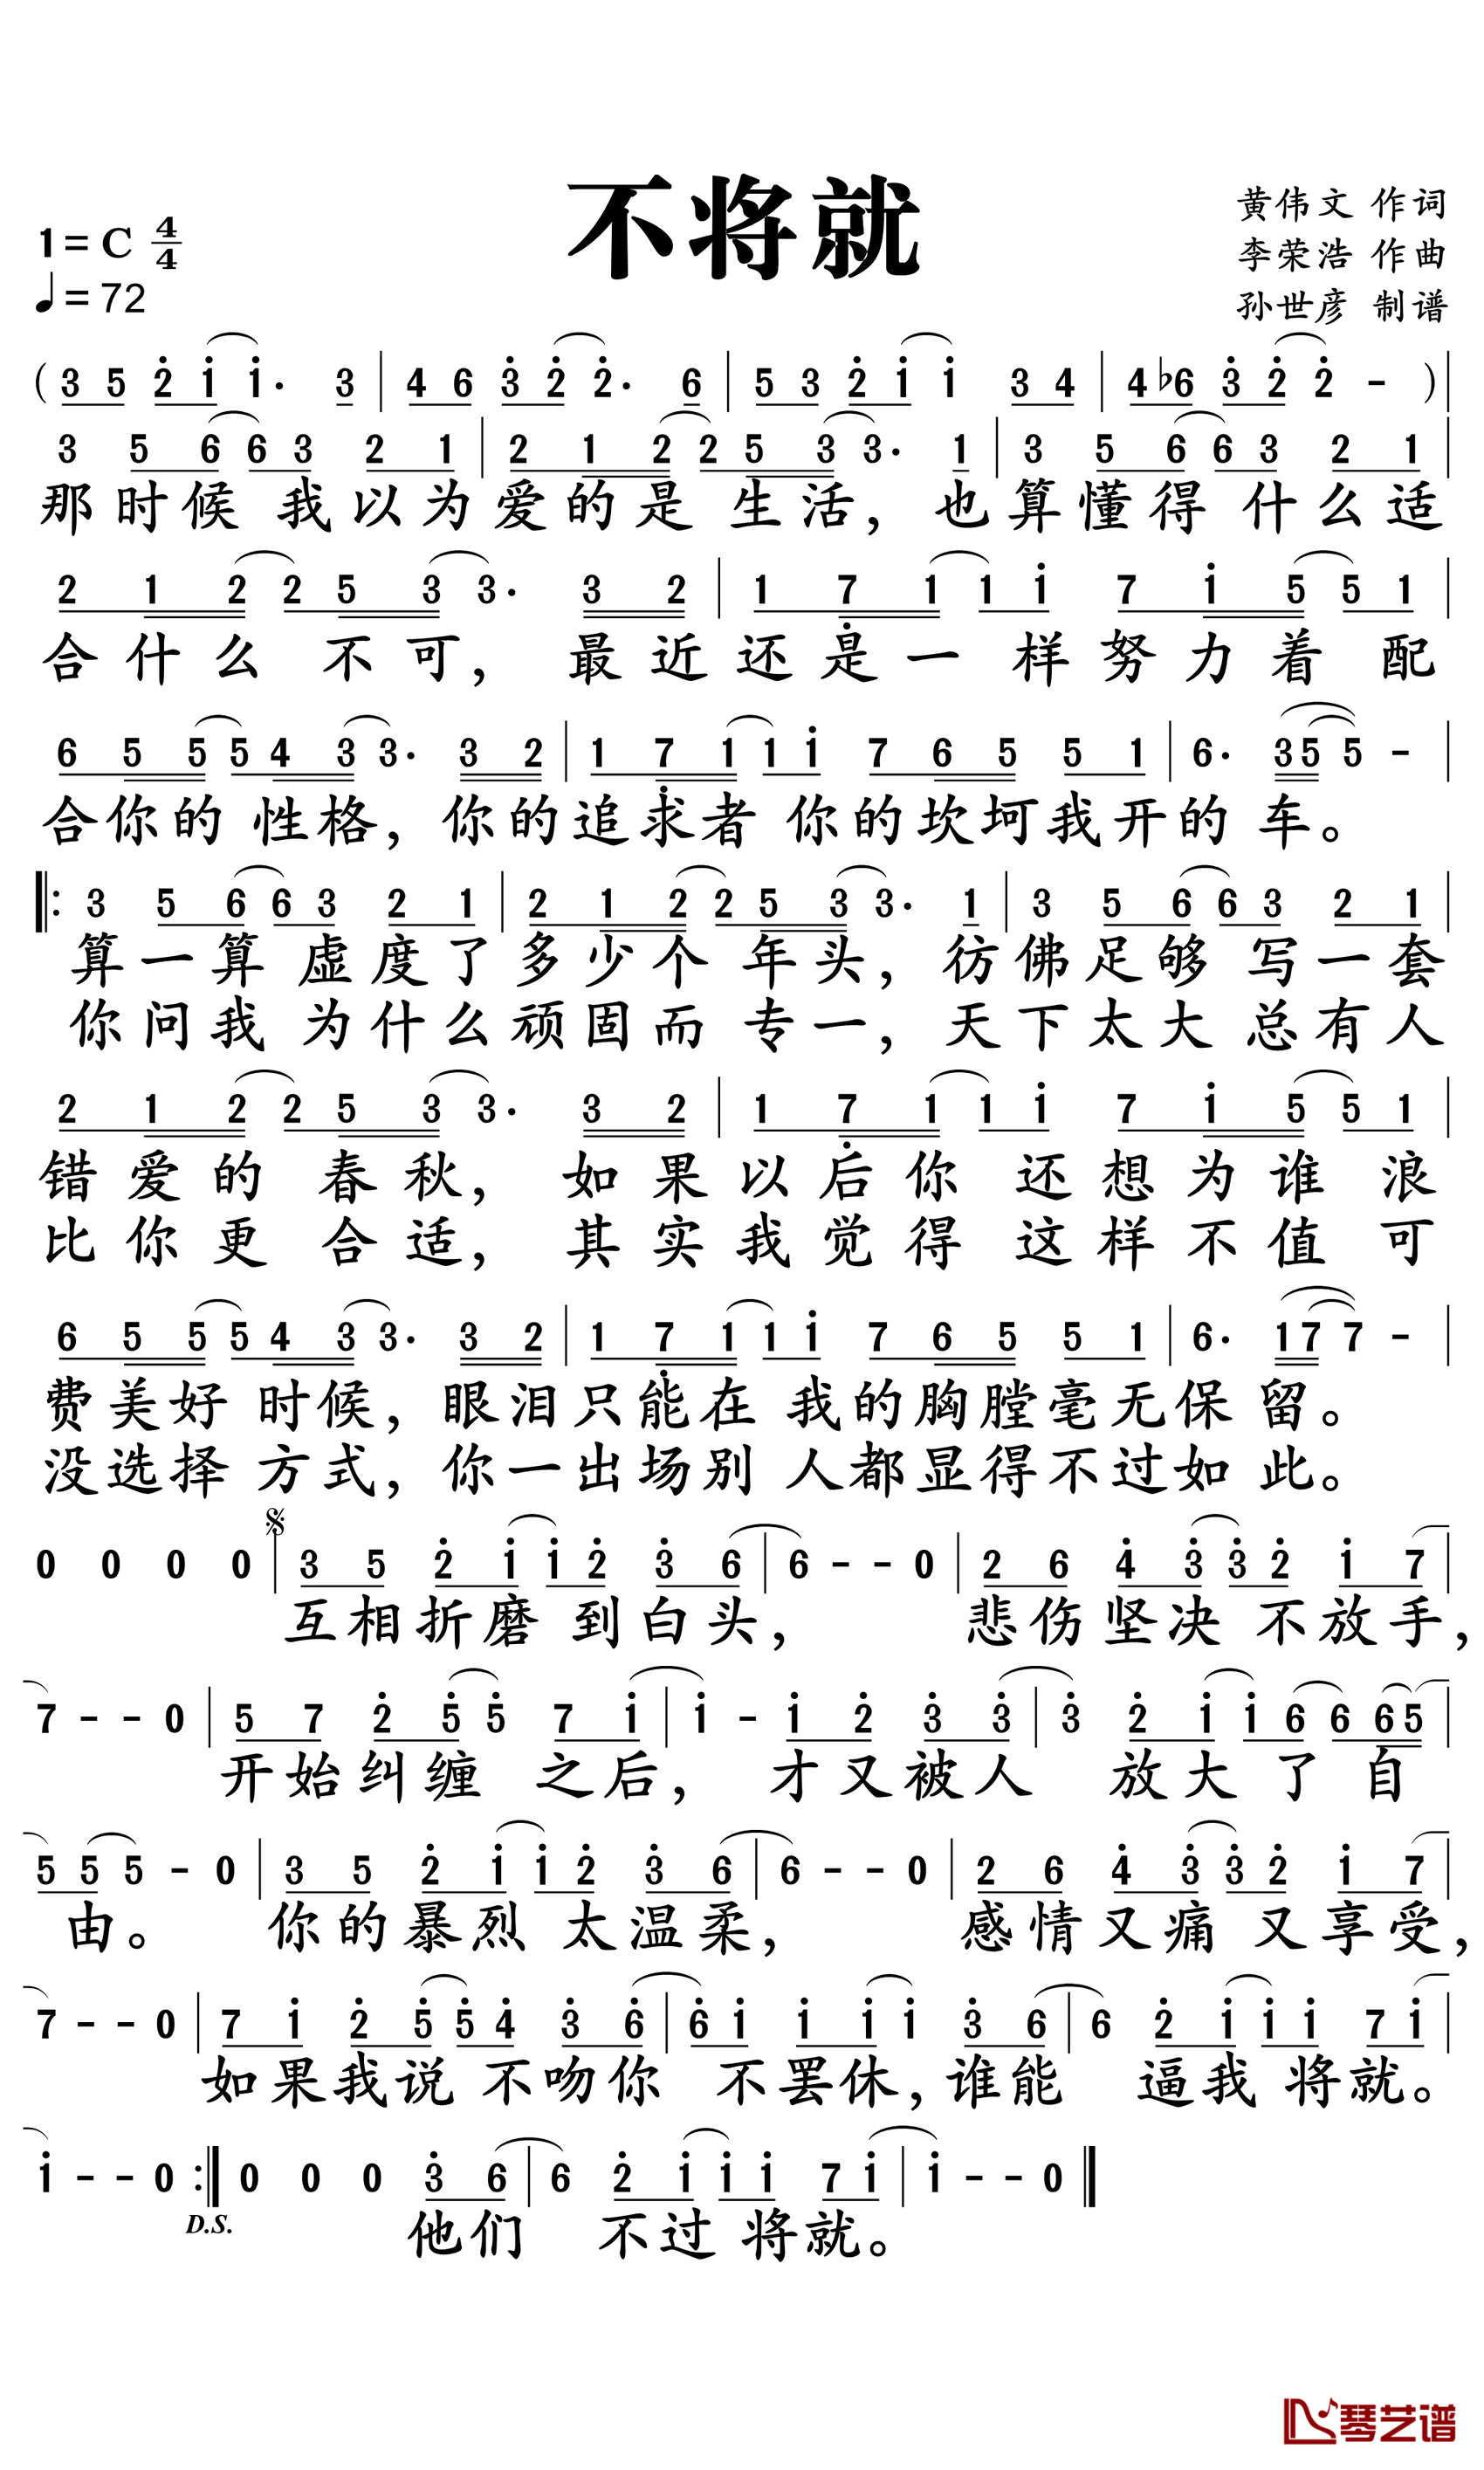 不将就
1=C 4/4
♩=72
黄伟文 作词
李荣浩 作曲
孙世彦 制谱
(3 5 2̇ 1̇ 1̇· 3 | 4 6 3̇ 2̇ 2̇· 6 | 5 3 2̇ 1̇ 1̇ 3 4 | 4 ♭6 3̇ 2̇ 2̇ - )|
3 5 6 6 3 2 1 | 2 1 2 2 5 3 3· 1 | 3 5 6 6 3 2 1 |
那时候 我以为爱的是 生活, 也算懂得 什么适
2 1 2 2 5 3 3· 3 2 | 1 7̣ 1 1 1̇ 7 1̇ 5 5 1 |
合什么 不可, 最近还是一 样努力着 配
6 5 5 5 4 3 3· 3 2 | 1 7̣ 1 1 1̇ 7 6 5 5 1 | 6· 3 5 5 - |
合你的 性格, 你的追求者 你的坎坷我开的 车。
‖: 3 5 6 6 3 2 1 | 2 1 2 2 5 3 3· 1 | 3 5 6 6 3 2 1 |
算一算 虚度了多少个 年头, 彷佛足够 写一套
你问我 为什么顽固而 专一, 天下太大 总有人
2 1 2 2 5 3 3· 3 2 | 1 7̣ 1 1 1̇ 7 1̇ 5 5 1 |
错爱的 春秋, 如果以后你 还想为谁 浪
比你更 合适, 其实我觉得 这样不值 可
6 5 5 5 4 3 3· 3 2 | 1 7̣ 1 1 1̇ 7 6 5 5 1 | 6· 1 7 7 - |
费美好 时候, 眼泪只能在 我的胸膛毫无保 留。
没选择 方式, 你一出场别 人都显得不过如 此。
0 0 0 0 | 𝄋 3 5 2̇ 1̇ 1̇ 2̇ 3̇ 6 | 6 - - 0 | 2 6 4̇ 3̇ 3̇ 2̇ 1̇ 7 |
互相折磨 到白头, 悲伤坚决 不放手,
7 - - 0 | 5 7 2̇ 5̇ 5̇ 7 1̇ | 1̇ - 1̇ 2̇ 3̇ 3̇ | 3̇ 2̇ 1̇ 1̇ 6 6 6 5 |
开始纠缠 之后, 才又被人 放大了自
5 5 5 - 0 | 3 5 2̇ 1̇ 1̇ 2̇ 3̇ 6 | 6 - - 0 | 2 6 4̇ 3̇ 3̇ 2̇ 1̇ 7 |
由。 你的暴烈 太温柔, 感情又痛 又享受,
7 - - 0 | 7 1̇ 2̇ 5̇ 5̇ 4̇ 3̇ 6̇ | 6̇ 1̇ 1̇ 1̇ 1̇ 3̇ 6 | 6 2̇ 1̇ 1̇ 1̇ 7 1̇ |
如果我说 不吻你 不罢休,谁能 逼我 将就。
1̇ - - 0 :‖ 0 0 0 3̇ 6 | 6 2̇ 1̇ 1̇ 1̇ 7 1̇ | 1̇ - - 0 ‖
D.S. 他们 不过 将就。
琴艺谱